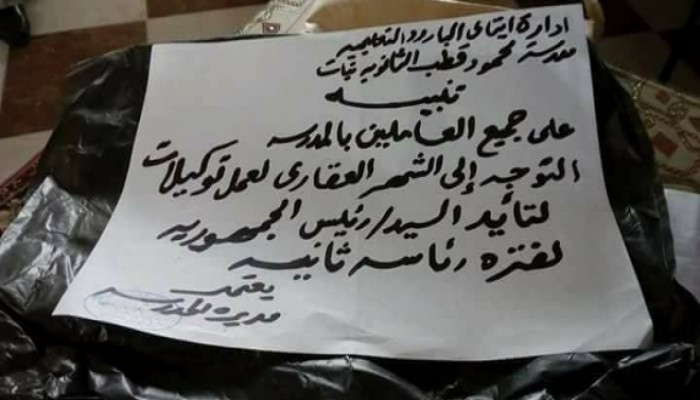 ادارة ايتاى البارود التعليمية
مدرسة محمود قطب الثانوية بنات
تنبيه
على جميع العاملين بالمدرسه
التوجه إلى الشهر العقارى لعمل توكيلات
لتائيد السيد/رئيس الجمهوريه
لفتره رئاسه ثانيه
يعتمد
مديرة المدرسه